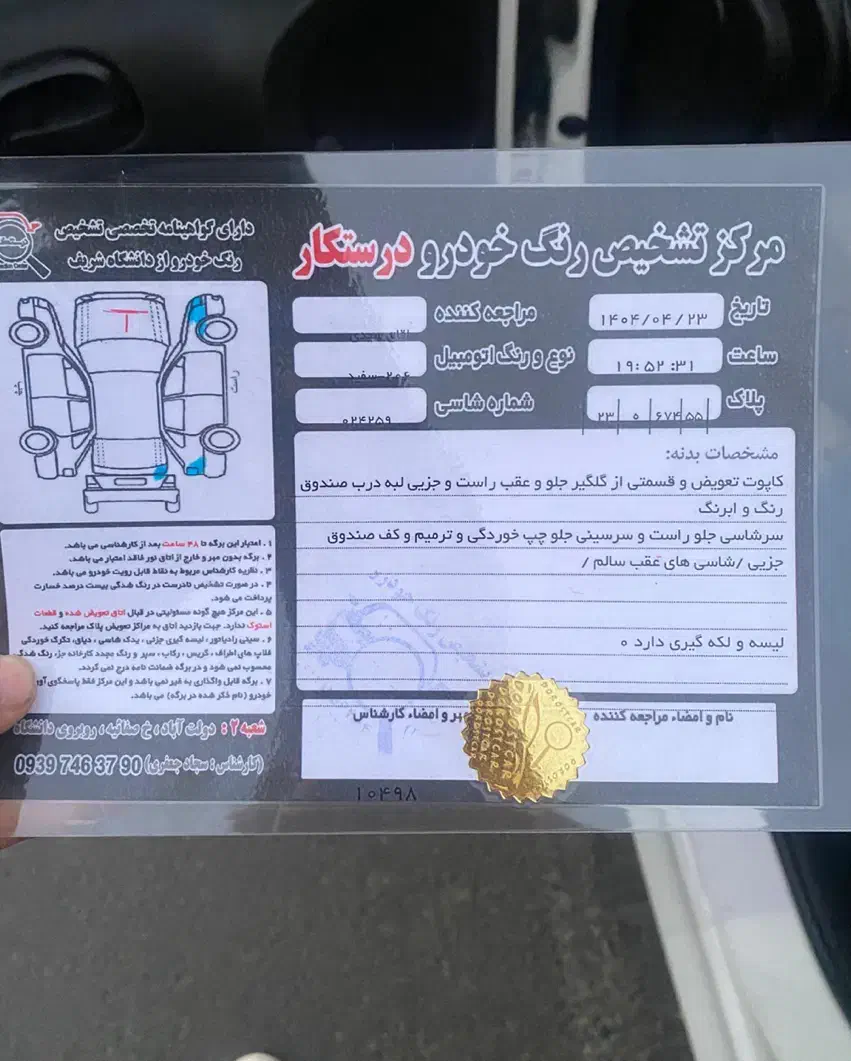 مرکز تشخیص رنگ خودرو درستکار
دارای گواهینامه تخصصی تشخیص
رنگ خودرو از دانشگاه شریف
تاریخ ۱۴۰۴/۰۴/۲۳
مراجعه کننده
ساعت ۱۹:۵۲:۳۱
نوع و رنگ اتومبیل ۲۰۶-سفید
پلاک ۵۵ ۶۷۴ ۲۳
شماره شاسی ۰۲۴۲۵۹
مشخصات بدنه:
کاپوت تعویض و قسمتی از گلگیر جلو و عقب راست و جزیی لبه درب صندوق
رنگ و ابرنگ
سرشاسی جلو راست و سرسینی جلو چپ خوردگی و ترمیم و کف صندوق
جزیی /شاسی های عقب سالم /
لیسه و لکه گیری دارد ه
نام و امضاء مراجعه کننده
مهر و امضاء کارشناس
۱۰۴۹۸
راست
چپ
T
۱. اعتبار این برگه تا ۴۸ ساعت بعد از کارشناسی می باشد.
۲. برگه بدون مهر و خارج از اتاق نور فاقد اعتبار می باشد.
۳. نظریه کارشناس مربوط به نقاط قابل رویت خودرو می باشد.
۴. در صورت تشخیص نادرست در رنگ شدگی بیست درصد خسارت
پرداخت می شود.
۵. این مرکز هیچ گونه مسئولیتی در قبال اتاق تعویض شده و قطعات
استوک ندارد. جهت بازدید اتاق به مراکز تعویض پلاک مراجعه کنید.
۶. سینی رادیاتور، لیسه گیری جزئی، یدک شاسی، دیاق، تگرگ خوردگی
قلاب های اطراف، گریس، رکاب، سپر و رنگ مجدد کارخانه جزء رنگ شدگی
محسوب نمی شود و در برگه ضمانت نامه درج نمی گردد.
۷. برگه قابل واگذاری به غیر نمی باشد و این مرکز فقط پاسخگوی
خودرو (نام ذکر شده در برگه) می باشد.
شعبه ۲: دولت آباد، خ صفائیه، روبروی دانشگاه
(کارشناس: سجاد جعفری) 0939 746 37 90